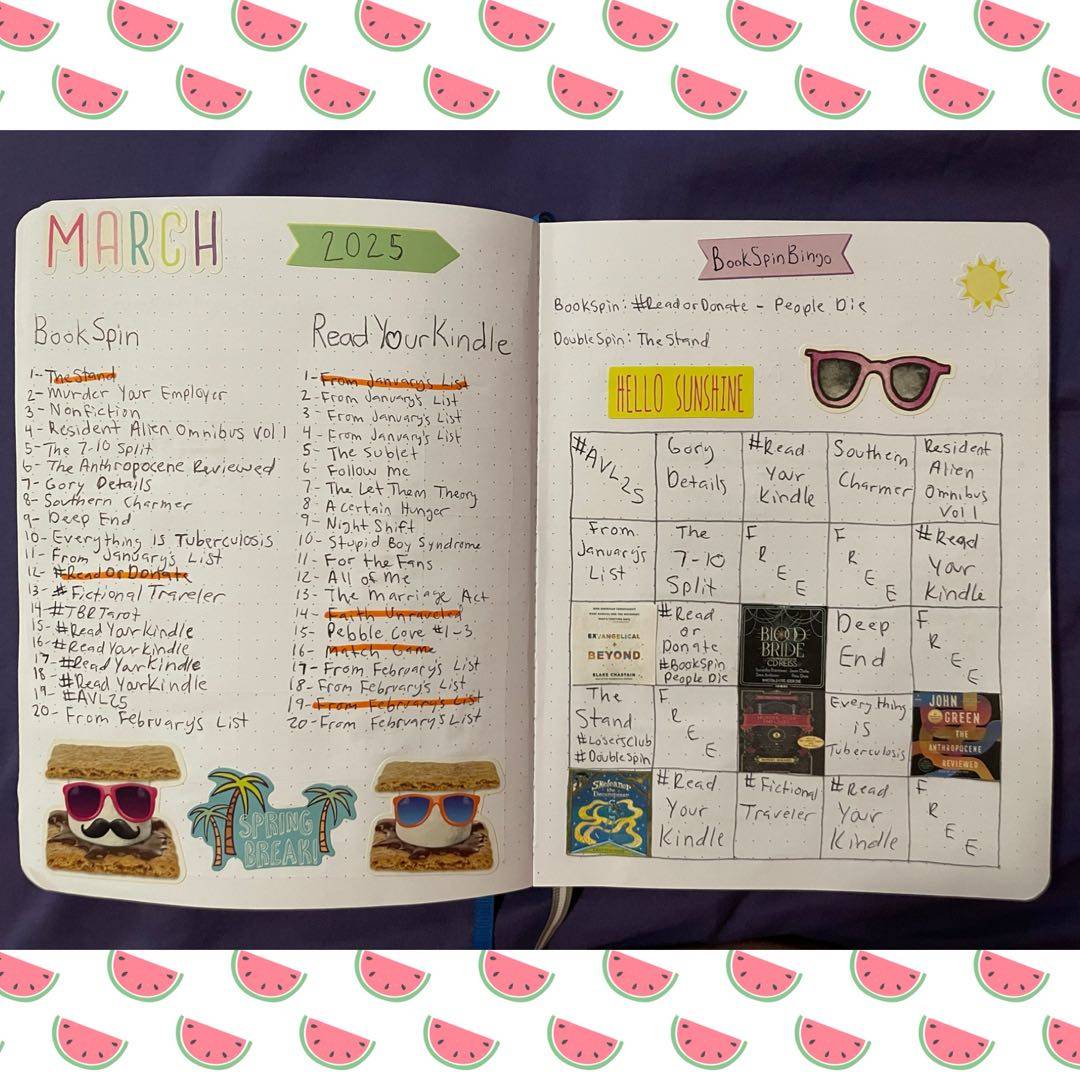 MARCH
2025
BookSpin
1- The Stand
2- Murder Your Employer
3- Nonfiction
4- Resident Alien Omnibus Vol 1
5- The 7-10 Split
6- The Anthropocene Reviewed
7- Gory Details
8- Southern Charmer
9- Deep End
10- Everything is Tuberculosis
11- From January's List
12- #ReadOrDonate
13- #Fictional Traveler
14- #TBRTarot
15- #ReadYourKindle
16- #ReadYourKindle
17- #ReadYourKindle
18- #ReadYourKindle
19- #AVL25
20- From February's List
ReadYourKindle
1- From January's List
2- From January's List
3- From January's List
4- From January's List
5- The Sublet
6- Follow Me
7- The Let Them Theory
8- A Certain Hunger
9- Night Shift
10- Stupid Boy Syndrome
11- For the Fans
12- All of Me
13- The Marriage Act
14- Faith Unraveled
15- Pebble Cove #1-3
16- Match Game
17- From February's List
18- From February's List
19- From February's List
20- From February's List
SPRING
BREAK!
BookSpinBingo
BookSpin: #ReadorDonate - People Die
DoubleSpin: The Stand
HELLO SUNSHINE
#AVL25
Gory
Details
#Read
Your
Kindle
Southern
Charmer
Resident
Alien
Omnibus
Vol 1
From
January's
List
The
7-10
Split
FREE
FREE
#Read
Your
Kindle
EXVANGELICAL
+
BEYOND
BLAKE CHASTAIN
#Read
or
Donate
#BookSpin
People Die
BLOOD
BRIDE
CD REISS
Deep
End
FREE
The
Stand
#LosersClub
#DoubleSpin
FREE
Everything
is
Tuberculosis
JOHN
GREEN
THE
ANTHROPOCENE
REVIEWED
#Read
Your
Kindle
#Fictional
Traveler
#Read
Your
Kindle
FREE